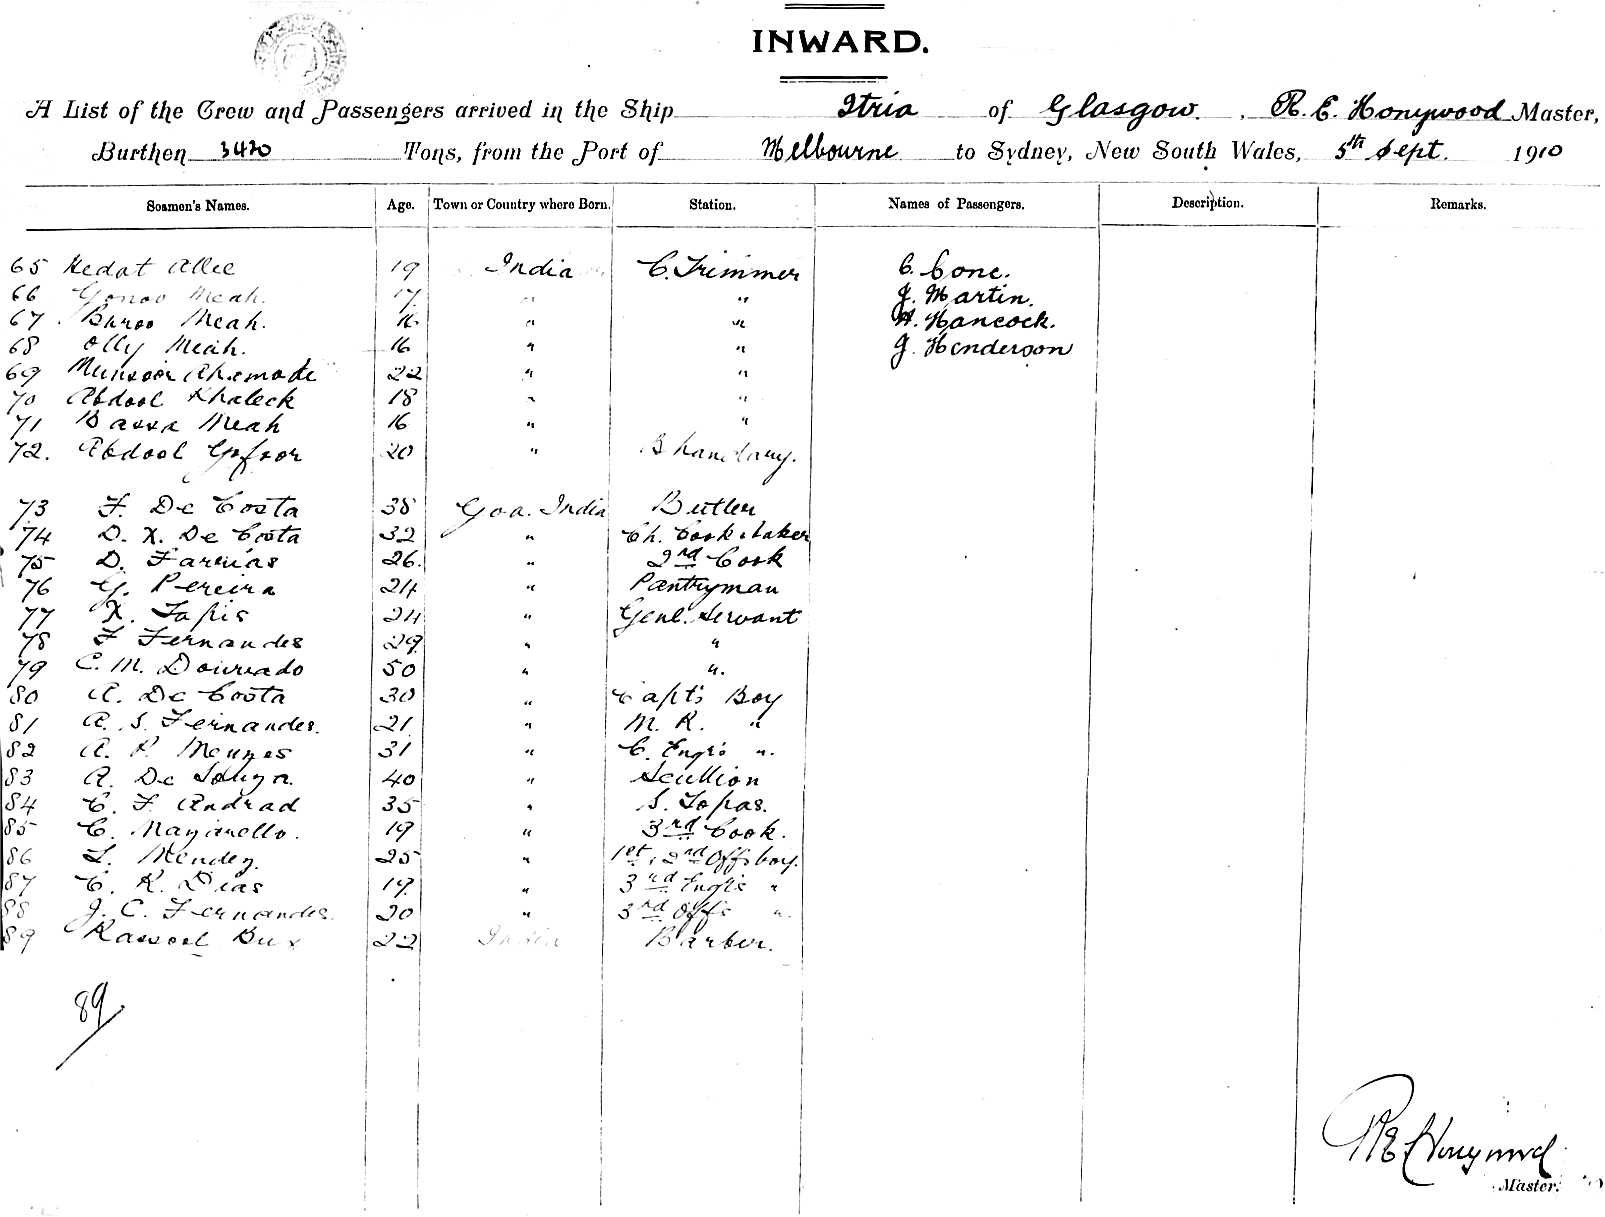 INWARD.
A List of the Crew and Passengers arrived in the Ship Itria of Glasgow. R. E. Honywood Master,
Burthen 3420 Tons, from the Port of Melbourne to Sydney, New South Wales, 5th Sept. 1910
Seamen's Names. Age. Town or Country where Born. Station. Names of Passengers. Description. Remarks.
65 Hedat Allee 19 India C. Trimmer C. Cone.
66 Gonoo Meah. 17 " " J. Martin.
67 Buroo Meah. 16 " " H. Hancock.
68 Olly Meah. 16 " " J. Henderson
69 22 " "
70 Abdool Khaleck 18 " "
71 Bassa Meah 16 " "
72. Abdool Gofoor 20 " Bhandary.
73 F. De Costa 38 Goa. India Butler
74 D. X. De Costa 32 " Ch. Cook & baker
75 D. Farrias 26. " 2nd Cook
76 G. Pereira 24 " Pantryman
77 X. Lopis 24 " Genl. Servant
78 F Fernandes 29 " "
79 C. M. Dourado 50 " ".
80 A. De Costa 30 " Capt's Boy
81 A. S. Fernandes. 21 " M. R. "
82 A. P. Menzes 31 " C. Engr's ".
83 A. De Souza. 40 " Scullion
84 C. F. Andrad 35 " S. Topas.
85 C. 19 " 3rd Cook.
86 L. Mendez. 25 " 1st & 2nd Offs boy.
87 C. R. Dias 19 " 3rd Engr's "
88 J. C. Fernandes. 20 " 3rd Offs ".
89 Rassool Bux 22 India Barber.
89
R E Honywood
Master.